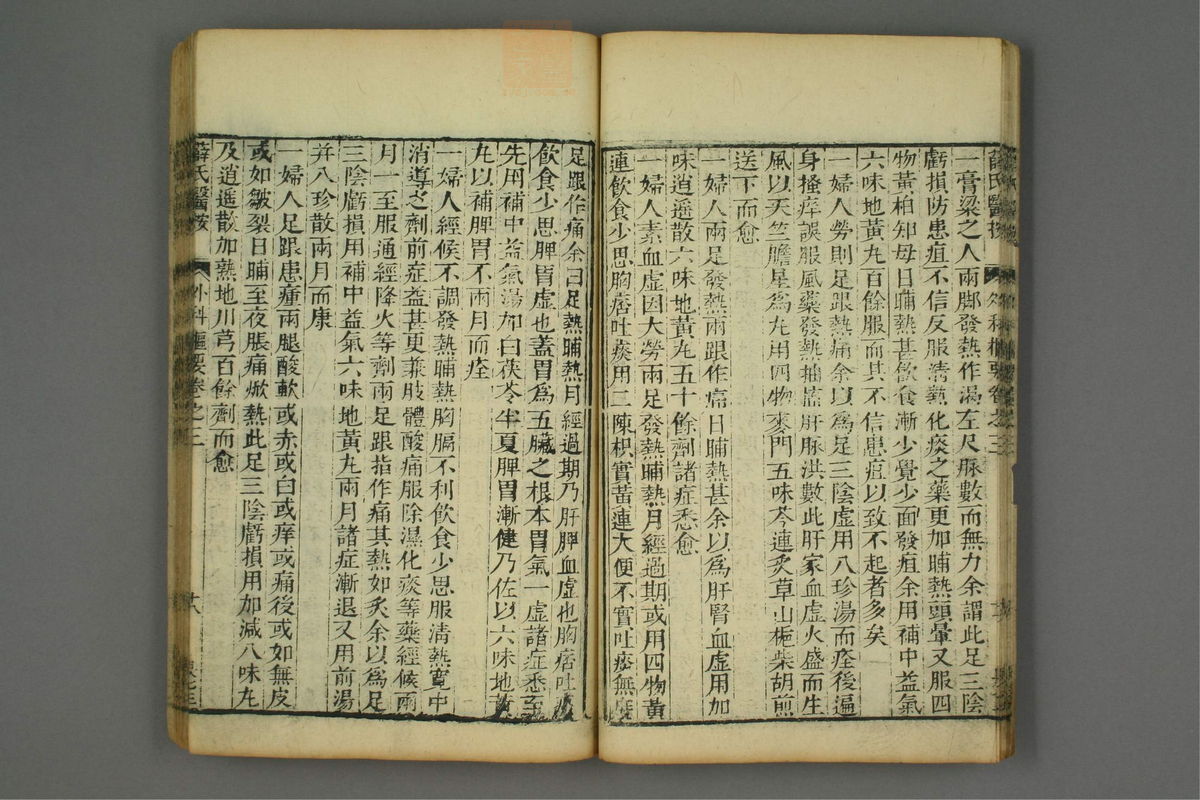 薛氏醫按 外科樞要卷之三
一膏粱之人兩脚發熱作渴左尺脉數而無力余謂此足三陰
虧損防患疽不信反服清熱化痰之藥更加晡熱頭暈又服四
物黃柏知母日晡熱甚飲食漸少覺少面發疽余用補中益氣
六味地黃丸百餘服而其不信患疽以致不起者多矣
一婦人勞則足跟熱痛余以爲足三陰虛用八珍湯而痊後遍
身搔痒誤服風藥發熱抽搐肝脉洪數此肝家血虛火盛而生
風以天竺膽星爲丸用四物麥門五味芩連炙草山梔柴胡煎
送下而愈
一婦人兩足發熱兩跟作痛日晡熱甚余以爲肝腎血虛用加
味逍遥散六味地黃丸五十餘劑諸症悉愈
一婦人素血虛因大勞兩足發熱晡熱月經過期或用四物黃
連飲食少思胸痞吐痰用二陳枳實黃連大便不實吐痰無度
足跟作痛余曰足熱晡熱月經過期乃肝脾血虛也胸痞吐痰
飲食少思脾胃虛也蓋胃爲五臟之根本胃氣一虛諸症悉至
先用補中益氣湯加白茯苓半夏脾胃漸健乃佐以六味地黃
丸以補脾胃不兩月而痊
一婦人經候不調發熱晡熱胸膈不利飲食少思服清熱寬中
消導之劑前症益甚更兼肢體酸痛服除濕化痰等藥經候兩
月一至服通經降火等劑兩足跟指作痛其熱如炙余以爲足
三陰虧損用補中益氣六味地黃丸兩月諸症漸退又用前湯
并八珍散兩月而康
一婦人足跟患腫兩腿酸軟或赤或白或痒或痛後或如無皮
或如皺裂日晡至夜脹痛焮熱此足三陰虧損用加減八味丸
及逍遥散加熟地川芎百餘劑而愈
薛氏醫按 外科樞要卷之三